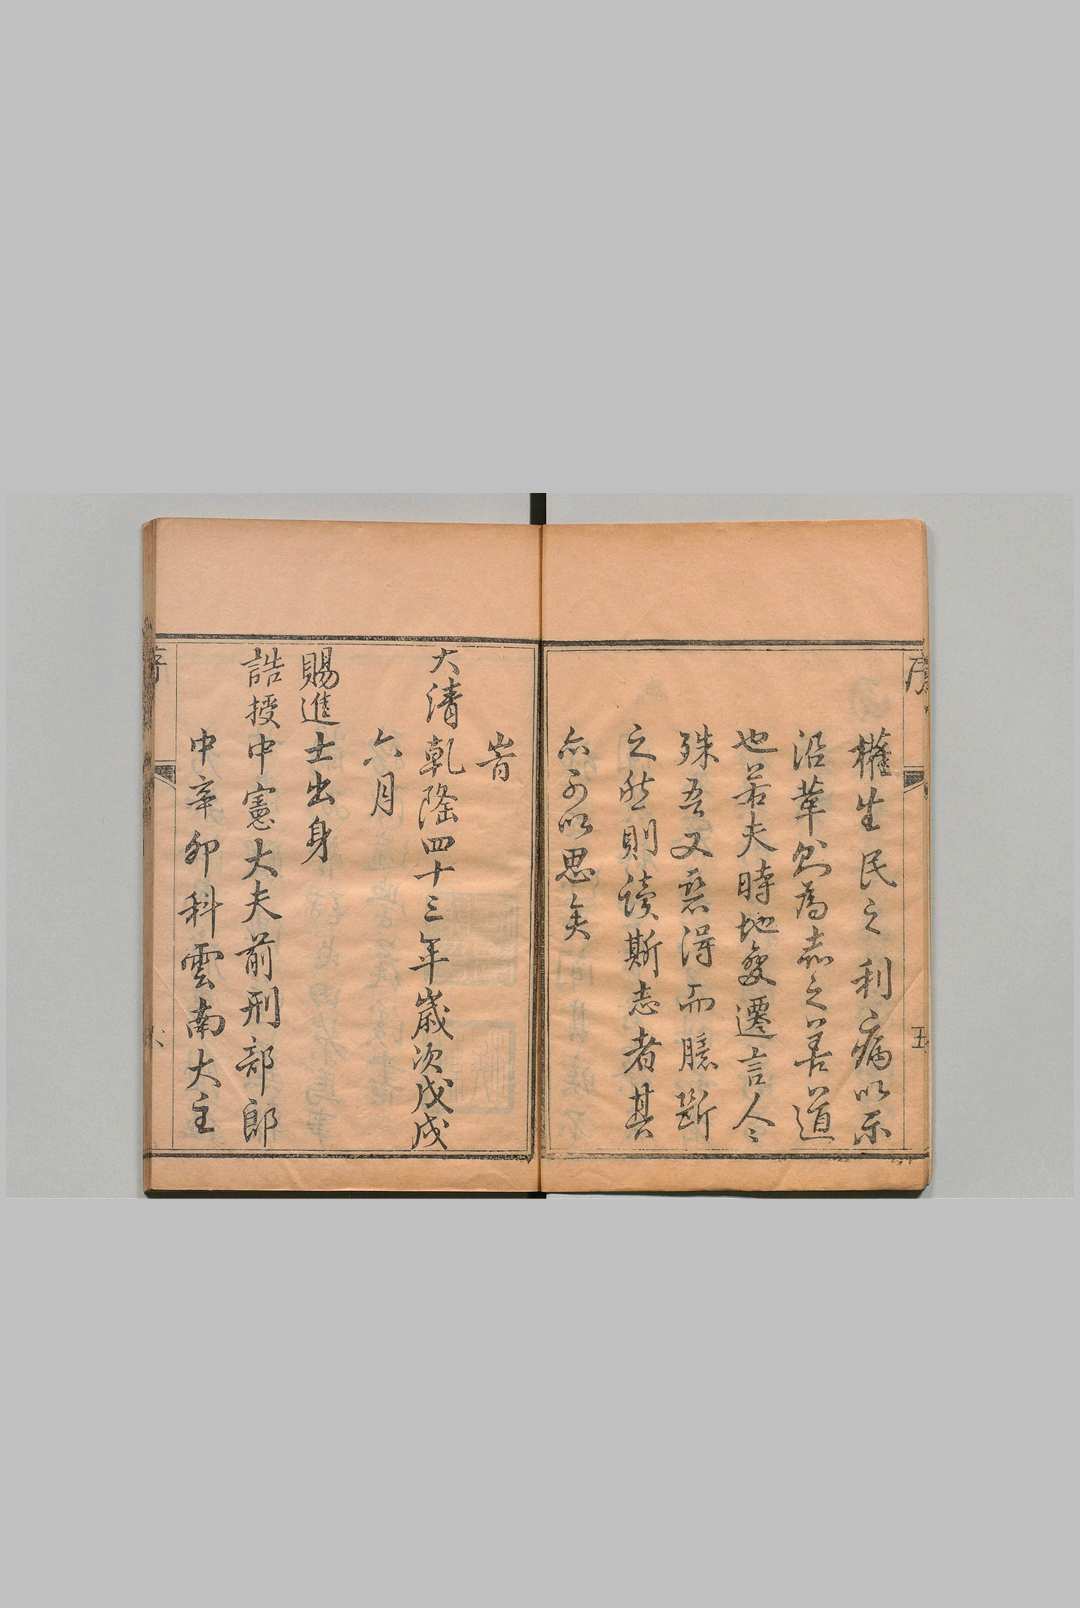 序 五
權生民之利病以示
沿革則為志之善道
也若夫時地變遷言人〻
殊吾又惡得而臆斷
之然則讀斯志者其
亦可以思矣
旹
大清乾隆四十三年歲次戊戌
六月
賜進士出身
誥授中憲大夫前刑部郎
中辛卯科雲南大主